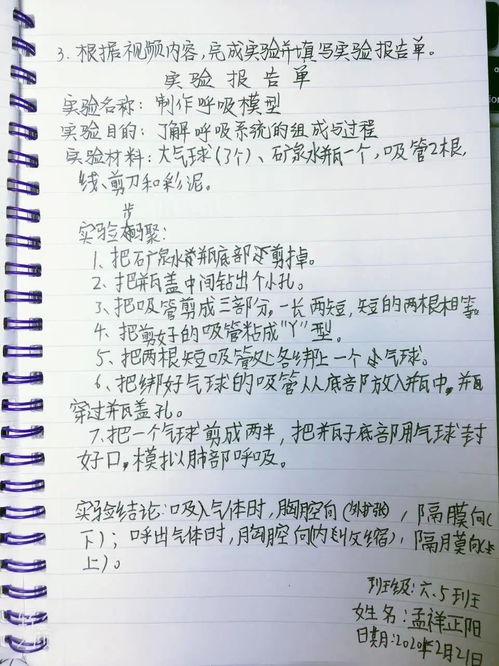 3. 根据视频内容,完成实验并填写实验报告单。
实验报告单
实验名称: 制作呼吸模型
实验目的: 了解呼吸系统的组成与过程
实验材料: 大气球(3个)、矿泉水瓶一个,吸管2根,
线、剪刀和彩泥。
实验步骤:
1、把矿泉水瓶底部剪掉。
2、把瓶盖中间钻出个小孔。
3、把吸管剪成三部分,一长两短,短的两根相等。
4、把剪好的吸管粘成"Y"型。
5、把两根短吸管处各绑上一个小气球。
6、把绑好气球的吸管从底部放入瓶中,并
穿过瓶盖孔。
7、把一个气球剪成两半,把瓶子底部用气球封
好口,模拟肺部呼吸。
实验结论: 吸入气体时,胸腔向(外扩张),隔膜向(
下);呼出气体时,胸腔向(内收缩),隔膜向(
上)。
班级: 六.5班
姓名: 孟祥正阳
日期: 2020年2月21日